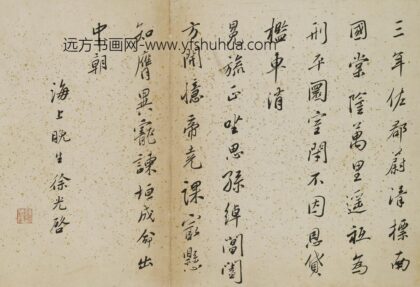 三年佐郡蔚清標南
國棠陰萬里遥祗為
刑平圜室閑不因恩貸
檻車消
旌正坐思孫綽閶闔
方開憶帝堯課寂懸
知膺異寵諫垣成命出
中朝
海上晚生徐光啓
远方书画网-www.yfshuhua.com